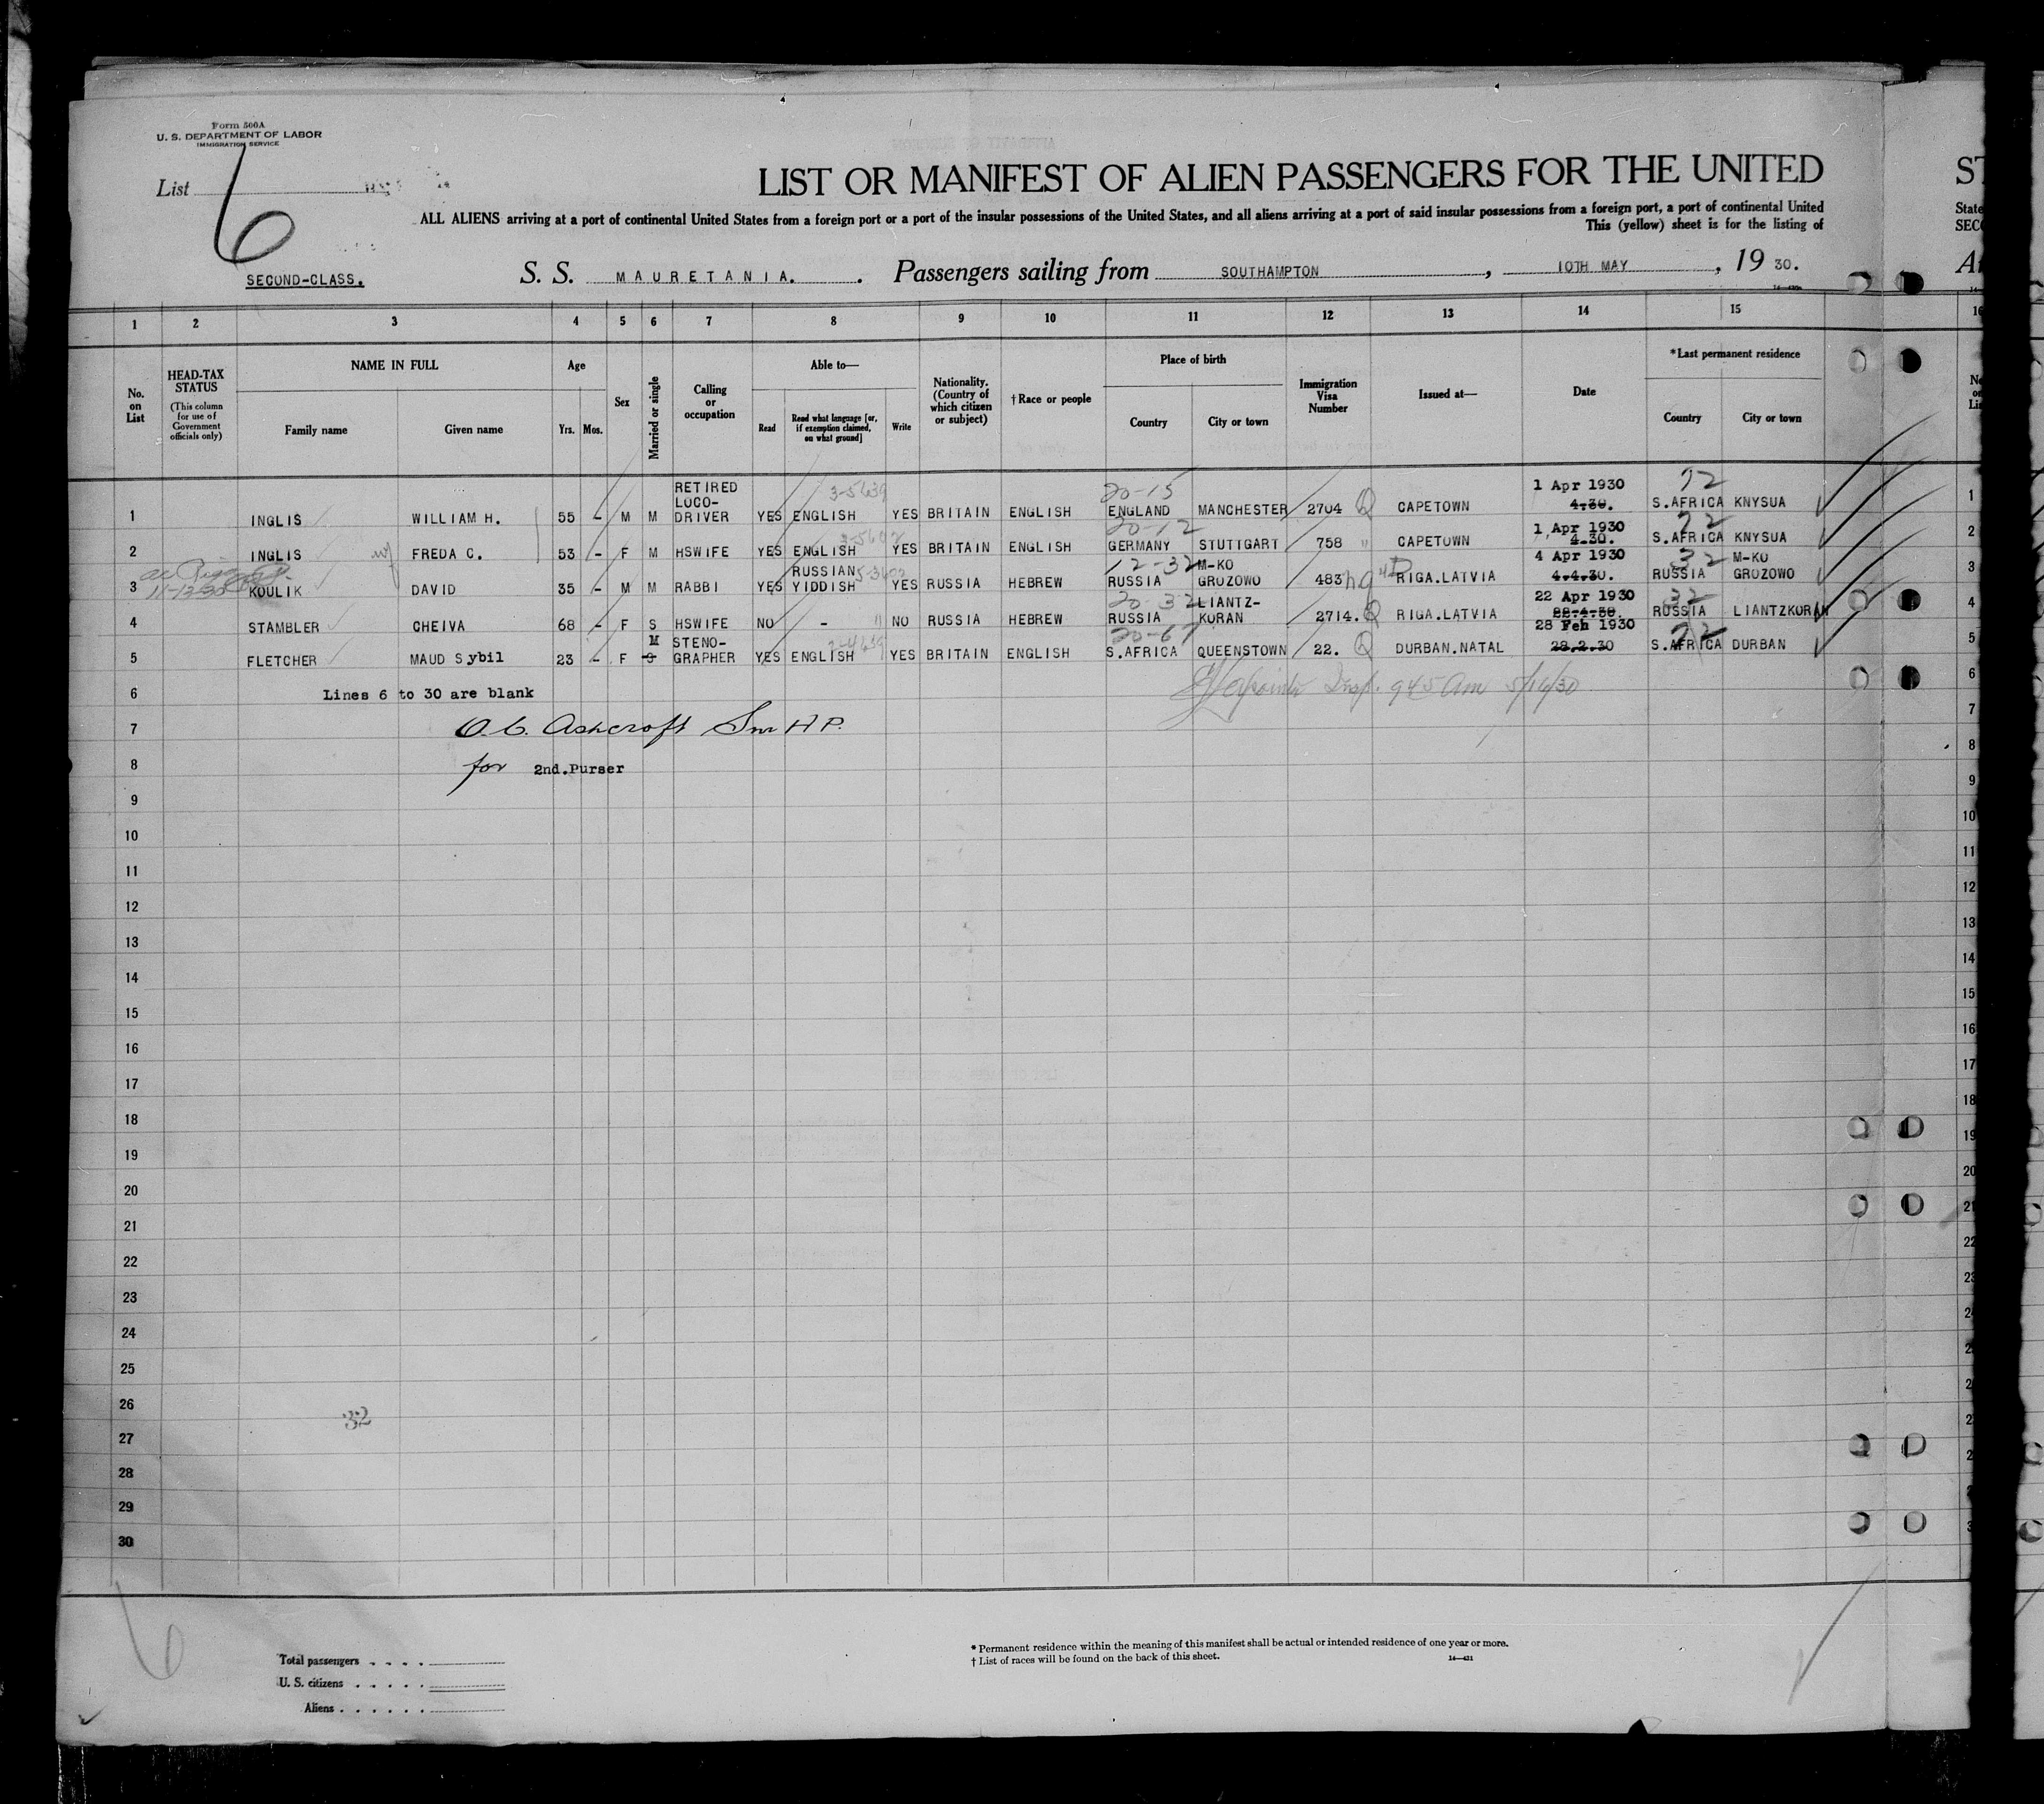 Form 500A
U. S. DEPARTMENT OF LABOR
IMMIGRATION SERVICE
List 6
LIST OR MANIFEST OF ALIEN PASSENGERS FOR THE UNITED
ST
ALL ALIENS arriving at a port of continental United States from a foreign port or a port of the insular possessions of the United States, and all aliens arriving at a port of said insular possessions from a foreign port, a port of continental United
State
This (yellow) sheet is for the listing of
SECO
SECOND-CLASS.
S. S. MAURETANIA. Passengers sailing from SOUTHAMPTON, 10TH MAY, 19 30.
1 2 3 4 5 6 7 8 9 10 11 12 13 14 15
No. on List
HEAD-TAX STATUS
(This column for use of Government officials only)
NAME IN FULL
Family name
Given name
Age
Yrs. Mos.
Sex
Married or single
Calling or occupation
Able to—
Read
Read what language [or, if exemption claimed, on what ground]
Write
Nationality. (Country of which citizen or subject)
† Race or people
Place of birth
Country
City or town
Immigration Visa Number
Issued at—
Date
*Last permanent residence
Country
City or town
3-5639 20-15 72
1 INGLIS WILLIAM H. 55 - M M RETIRED LOCO-DRIVER YES ENGLISH YES BRITAIN ENGLISH ENGLAND MANCHESTER 2704 Q CAPETOWN 1 Apr 1930 4.30. S.AFRICA KNYSUA
20-12 72
2 INGLIS wf FREDA C. 53 - F M HSWIFE YES ENGLISH YES BRITAIN ENGLISH GERMANY STUTTGART 758 " CAPETOWN 1 Apr 1930 4.30. S.AFRICA KNYSUA
11-13-30 12-32 32
3 KOULIK DAVID 35 - M M RABBI YES RUSSIAN YIDDISH YES RUSSIA HEBREW RUSSIA M-KO GROZOWO 483 RIGA.LATVIA 4 Apr 1930 4.4.30. RUSSIA M-KO GROZOWO
20-32 32
4 STAMBLER CHEIVA 68 - F S HSWIFE NO - " NO RUSSIA HEBREW RUSSIA LIANTZ-KORAN 2714. Q RIGA.LATVIA 22 Apr 1930 22.4.30. RUSSIA LIANTZKORAN
20-67 72
5 FLETCHER MAUD Sybil 23 - F M S STENO-GRAPHER YES ENGLISH YES BRITAIN ENGLISH S.AFRICA QUEENSTOWN 22. Q DURBAN.NATAL 28 Feb 1930 28.2.30 S.AFRICA DURBAN
6 Lines 6 to 30 are blank
Insp. 945 Am 5/16/30
7 O.C. Ashcroft
8 for 2nd.Purser
9
10
11
12
13
14
15
16
17
18
19
20
21
22
23
24
25
26
32
27
28
29
30
6
Total passengers
U. S. citizens
Aliens
* Permanent residence within the meaning of this manifest shall be actual or intended residence of one year or more.
† List of races will be found on the back of this sheet.
14—421